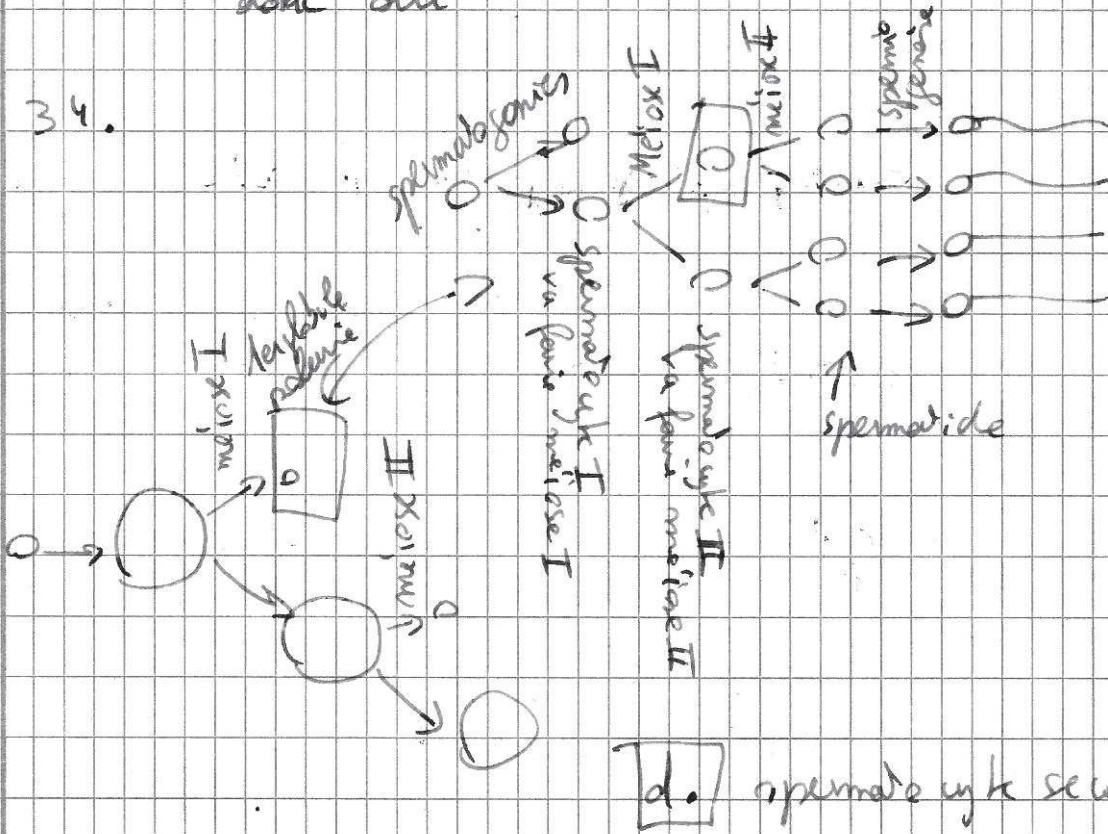 34.
spermatogonies
Méiose I
méiose II
spermio
genèse
spermatocyte I
va faire méiose I
spermatocyte II
va faire méiose II
spermatide
méiose I
1er globule
polaire
méiose II
d. spermatocyte sec